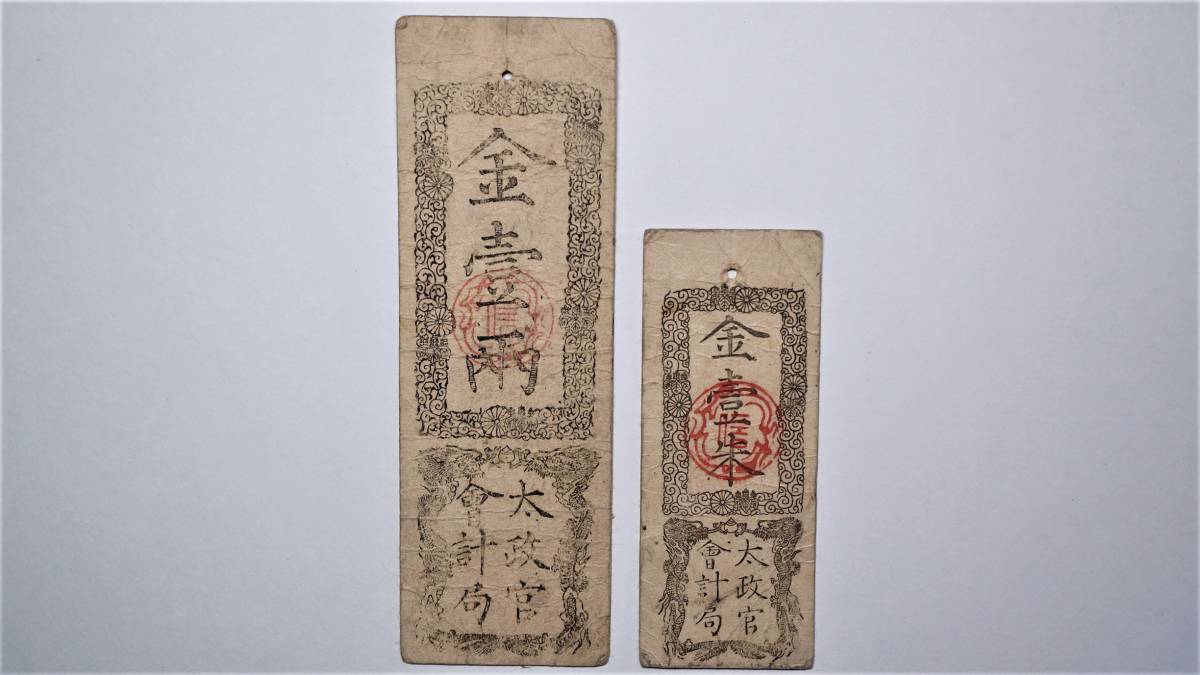 金壹兩
太政官
會計局
金壹朱
太政官
會計局